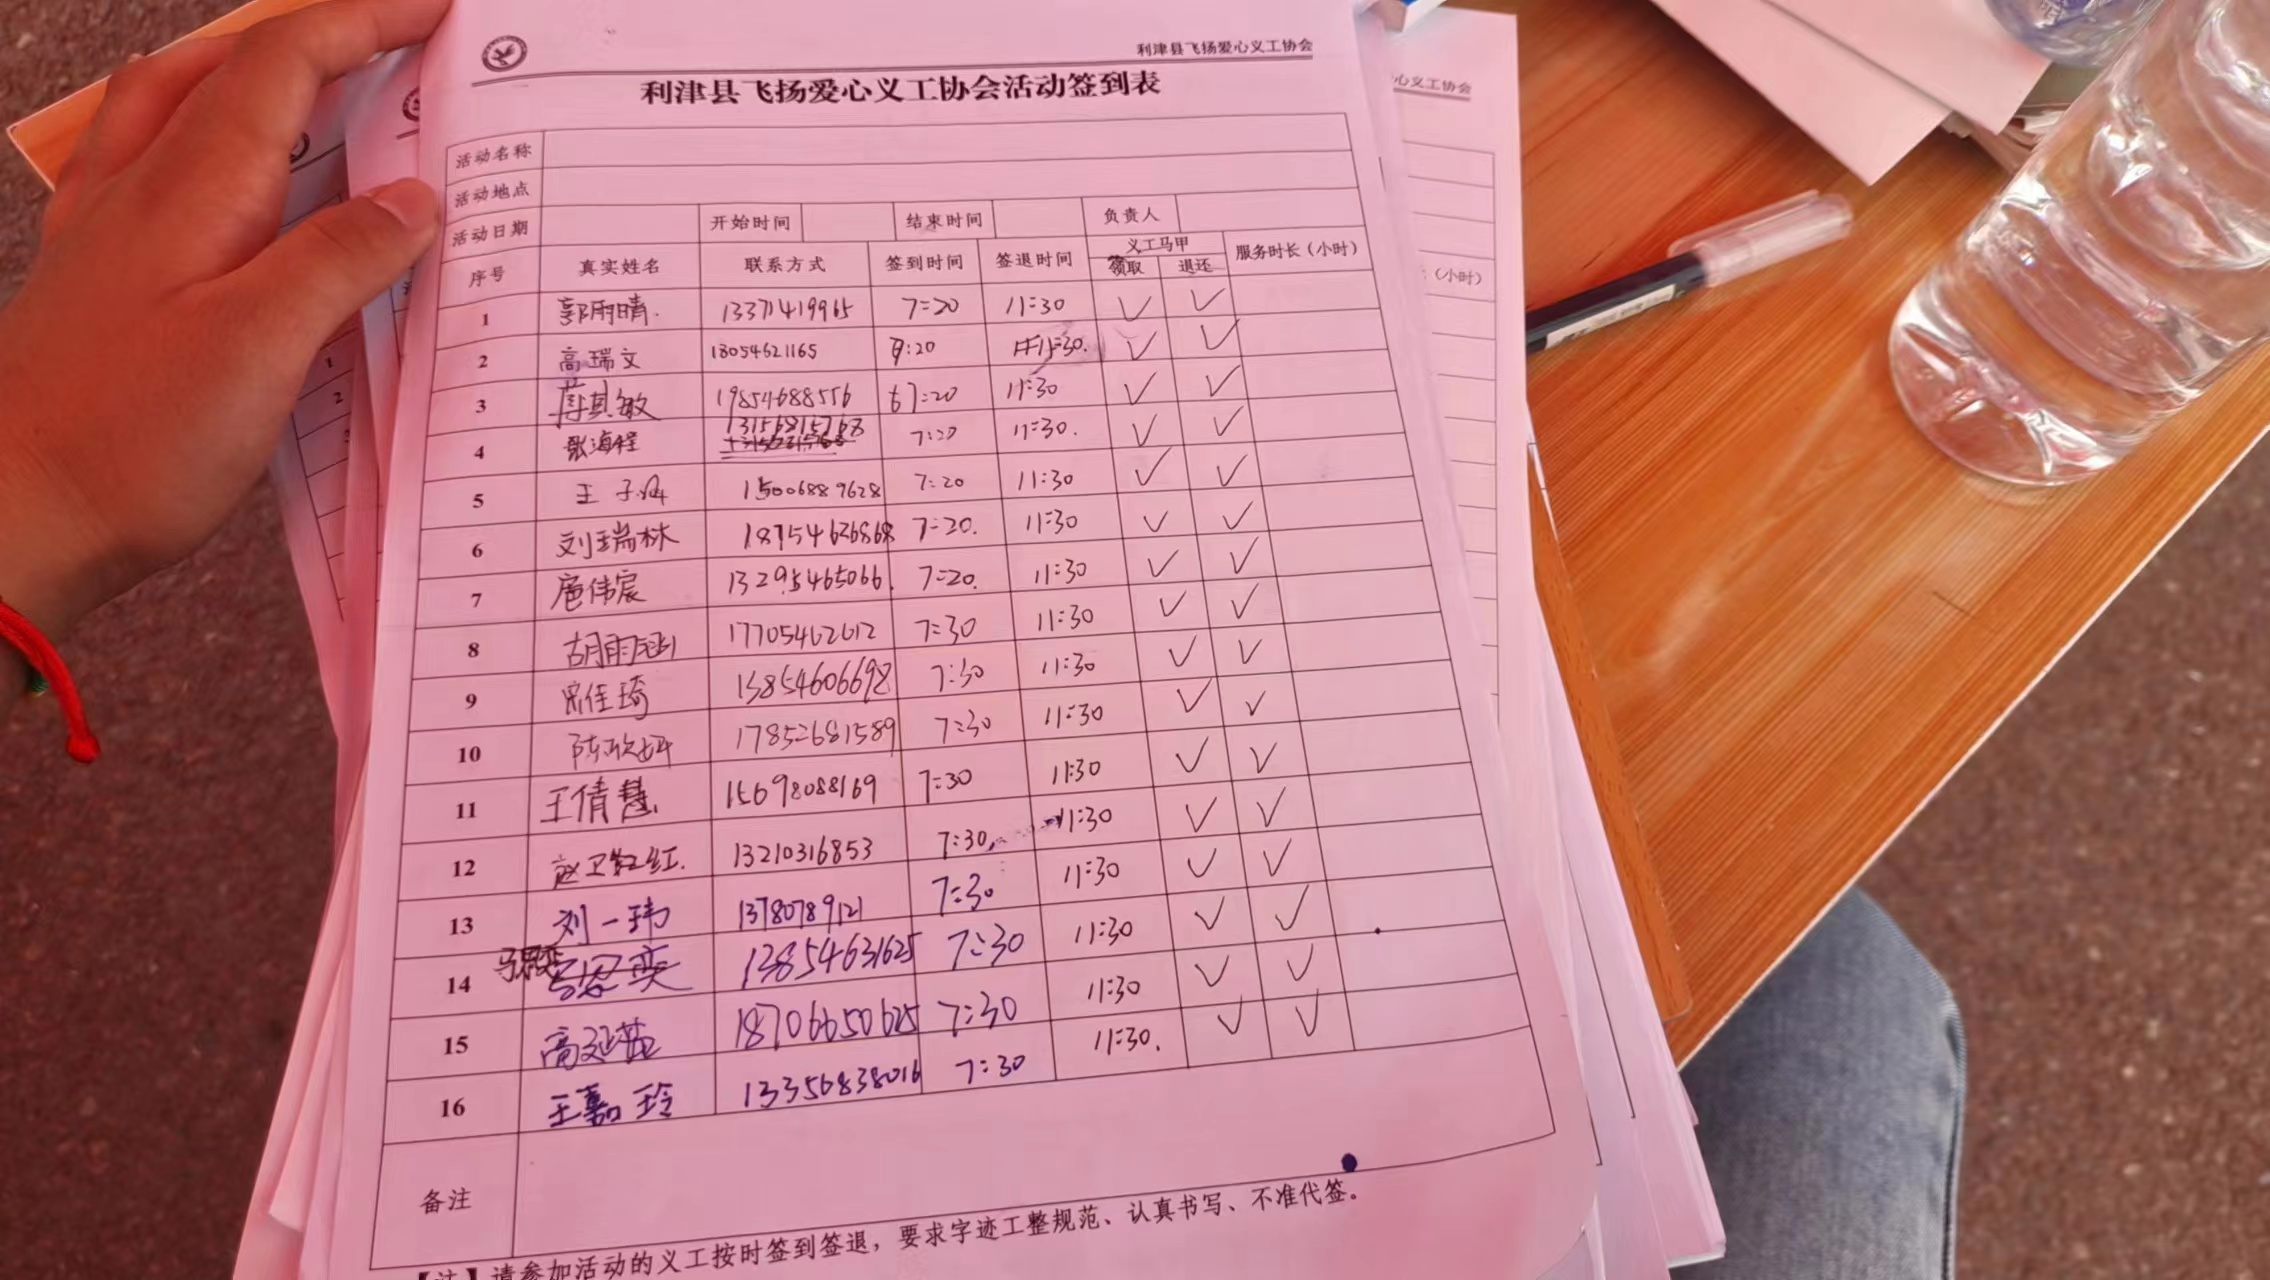 利津县飞扬爱心义工协会
心义工协会
利津县飞扬爱心义工协会活动签到表
活动名称
活动地点
活动日期 开始时间 结束时间 负责人
序号 真实姓名 联系方式 签到时间 签退时间 义工马甲 服务时长（小时）
领取 退还
（小时）
1 郭雨晴. 13371419965 7:20 11:30 ✓ ✓
2 高瑞文 18054621165 7:20 11:30. ✓ ✓
3 蒋其敏 19854688556 7:20 11:30 ✓ ✓
4 张海程 13156815768 7:20 11:30. ✓ ✓
5 王子 15006889628 7:20 11:30 ✓ ✓
6 刘瑞林 18754626868 7:20. 11:30 ✓ ✓
7 伟宸 13295465066. 7:20. 11:30 ✓ ✓
8 胡雨涵 17705462612 7:30 11:30 ✓ ✓
9 宋佳琦 15854606698 7:30 11:30 ✓ ✓
10 陈欣妤 17852681589 7:30 11:30 ✓ ✓
11 王倩慧 15698088169 7:30 11:30 ✓ ✓
12 赵卫红. 13210316853 7:30 11:30 ✓ ✓
13 刘一玮 13780789121 7:30 11:30 ✓ ✓
14 马思奕 13854631625 7:30 11:30 ✓ ✓
15 高延茹 18706650625 7:30 11:30 ✓ ✓
16 王嘉玲 13356838016 7:30 11:30. ✓ ✓
备注
【注】请参加活动的义工按时签到签退，要求字迹工整规范、认真书写、不准代签。